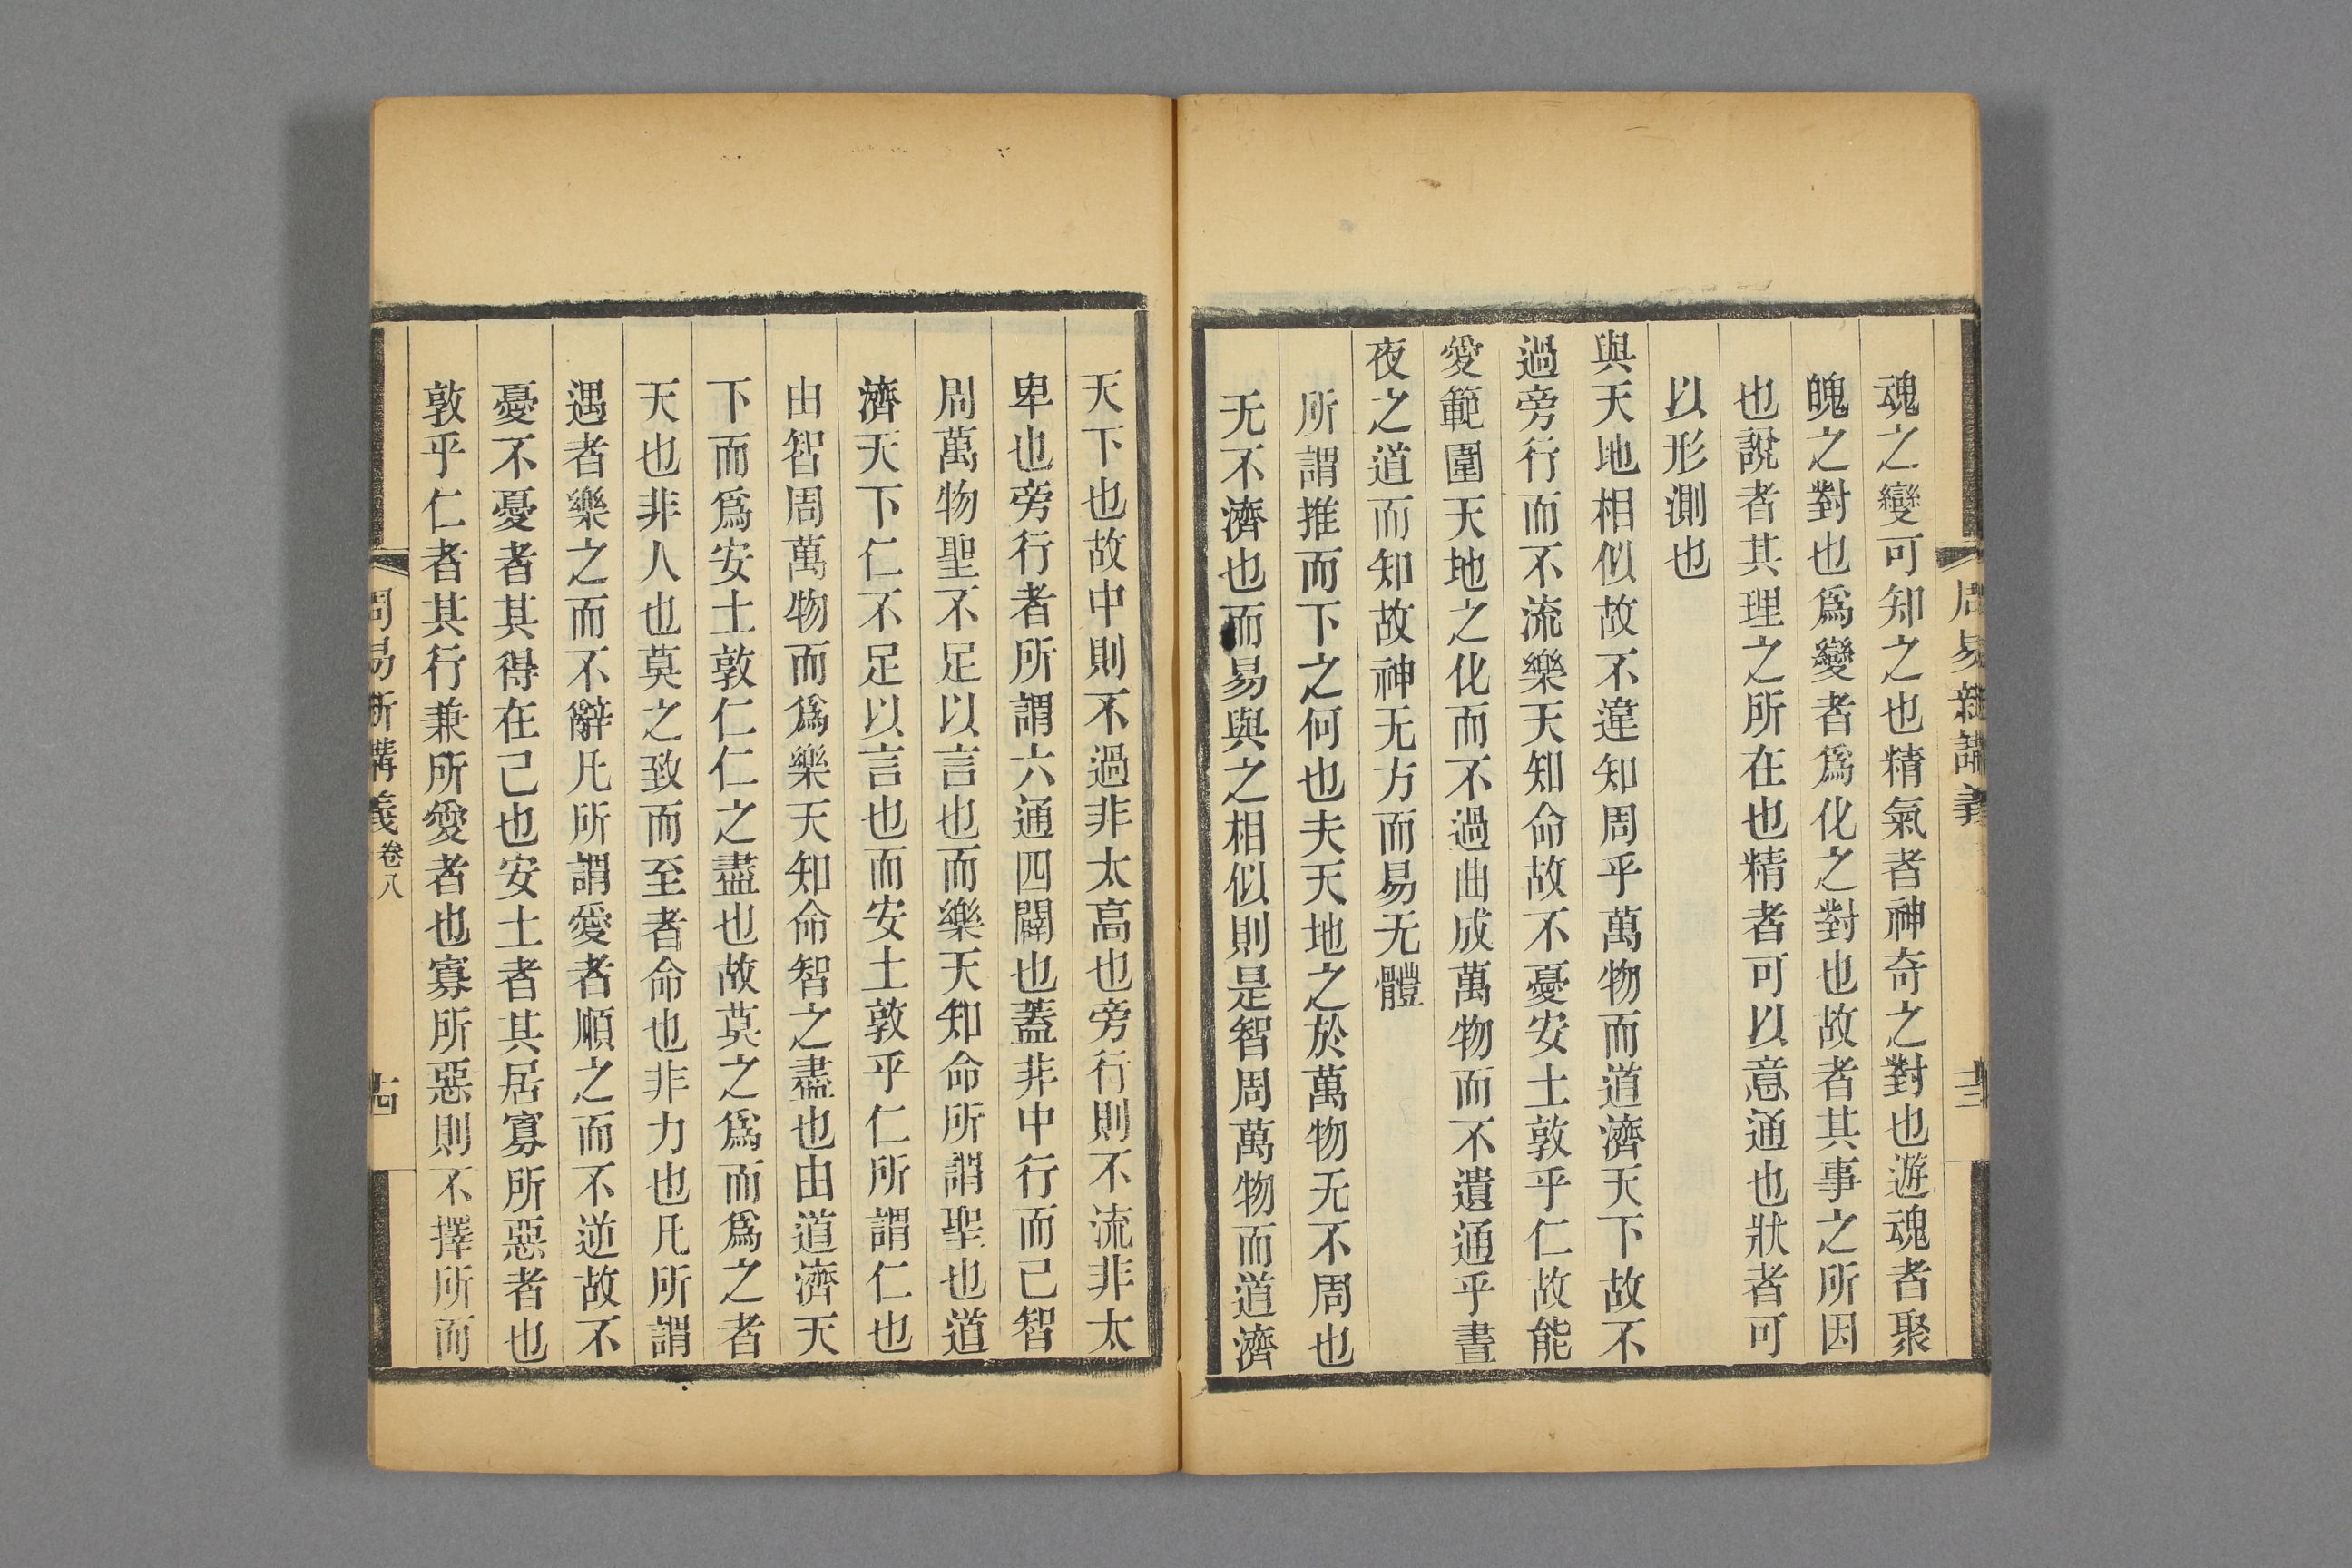 周易新講義
十三
魂之變可知之也精氣者神奇之對也遊魂者聚
魄之對也爲變者爲化之對也故者其事之所因
也說者其理之所在也精者可以意通也狀者可
以形測也
與天地相似故不違知周乎萬物而道濟天下故不
過旁行而不流樂天知命故不憂安土敦乎仁故能
愛範圍天地之化而不過曲成萬物而不遺通乎晝
夜之道而知故神无方而易无體
所謂推而下之何也夫天地之於萬物无不周也
无不濟也而易與之相似則是智周萬物而道濟
天下也故中則不過非太高也旁行則不流非太
卑也旁行者所謂六通四闢也蓋非中行而已智
周萬物聖不足以言也而樂天知命所謂聖也道
濟天下仁不足以言也而安土敦乎仁所謂仁也
由智周萬物而爲樂天知命智之盡也由道濟天
下而爲安土敦仁仁之盡也故莫之爲而爲之者
天也非人也莫之致而至者命也非力也凡所謂
遇者樂之而不辭凡所謂愛者順之而不逆故不
憂不憂者其得在己也安土者其居寡所惡者也
敦乎仁者其行兼所愛者也寡所惡則不擇所而
周易新講義卷八
十四